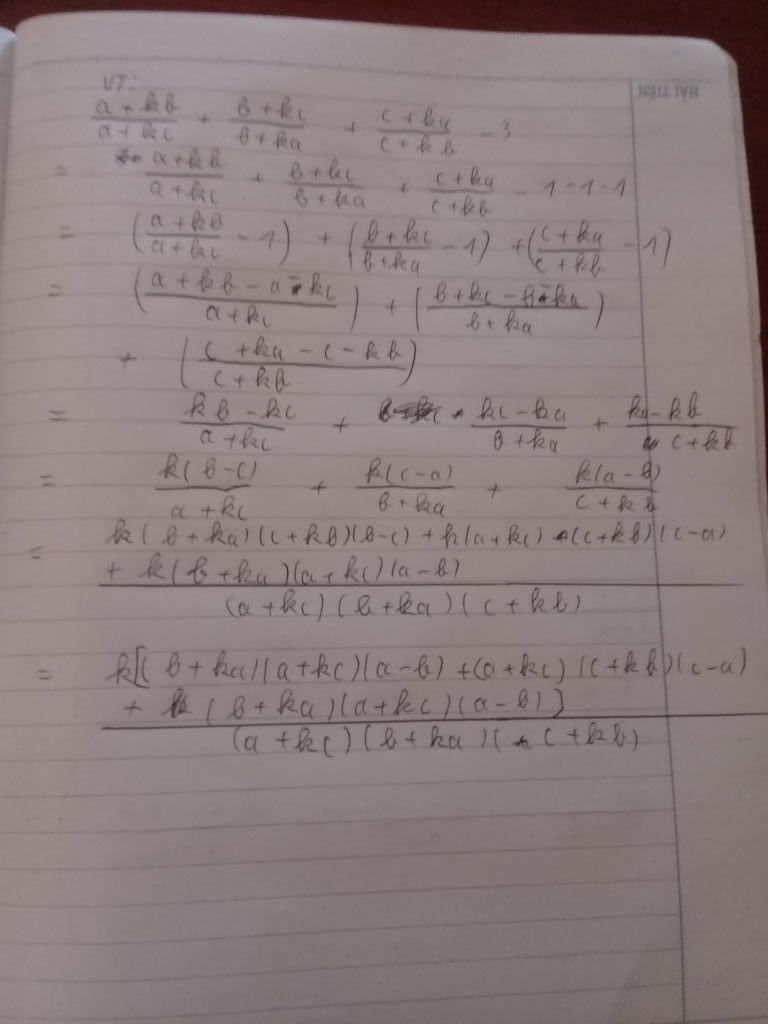 VT:
HẢI TIẾN
\frac{a+kb}{a+kc} + \frac{b+kc}{b+ka} + \frac{c+ka}{c+kb} - 3
= \frac{a+kb}{a+kc} + \frac{b+kc}{b+ka} + \frac{c+ka}{c+kb} - 1 - 1 - 1
= (\frac{a+kb}{a+kc} - 1) + (\frac{b+kc}{b+ka} - 1) + (\frac{c+ka}{c+kb} - 1)
= (\frac{a+kb-a-kc}{a+kc}) + (\frac{b+kc-b-ka}{b+ka})
+ (\frac{c+ka-c-kb}{c+kb})
= \frac{kb-kc}{a+kc} + \frac{kc-ka}{b+ka} + \frac{ka-kb}{c+kb}
= \frac{k(b-c)}{a+kc} + \frac{k(c-a)}{b+ka} + \frac{k(a-b)}{c+kb}
= k(b+ka)(c+kb)(b-c) + k(a+kc)(c+kb)(c-a)
+ k(b+ka)(a+kc)(a-b)
(a+kc)(b+ka)(c+kb)
= k[(b+ka)(a+kc)(a-b) + (a+kc)(c+kb)(c-a)
+ (b+ka)(a+kc)(a-b)]
(a+kc)(b+ka)(c+kb)